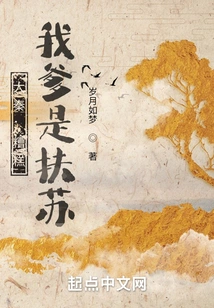 大秦 糟糕
我爹是扶苏
岁月如梦 ◎ 著
起点中文网